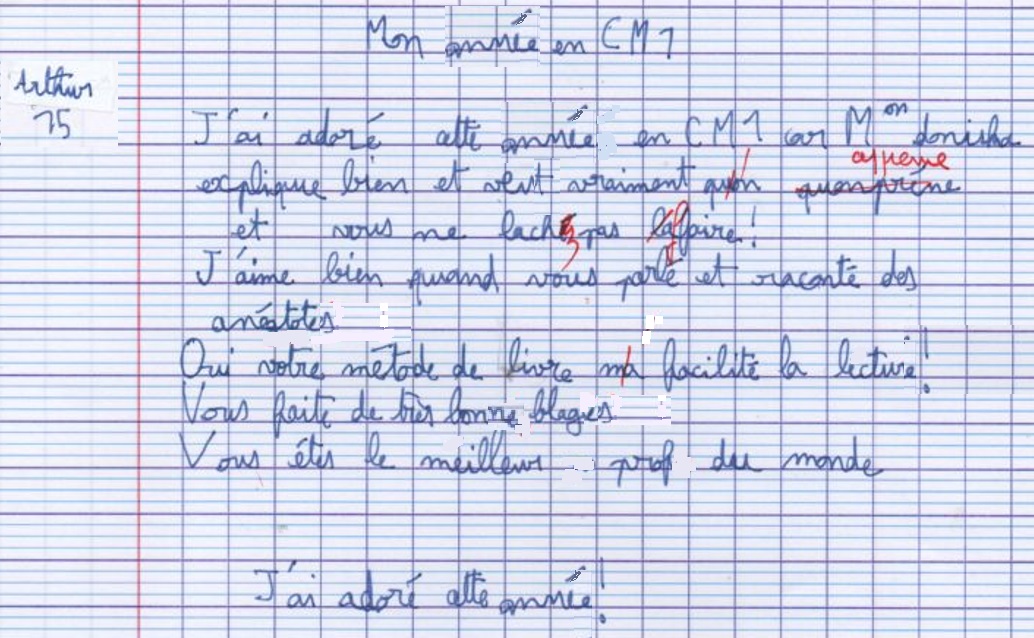 Mon année en CM1
Arthur
15
J'ai adoré cette année en CM1 car Mon donisha
apprenne
explique bien et veut vraiment qu'on quonprène
et vous ne lachéz pas l'affaire!
J'aime bien quand vous parlé et raconté des
anéctotes
Oui votre métode de livre m'a facilité la lecture!
Vous faite de très bonne blagues
Vous êtes le meilleur prof du monde
J'ai adoré cette année!